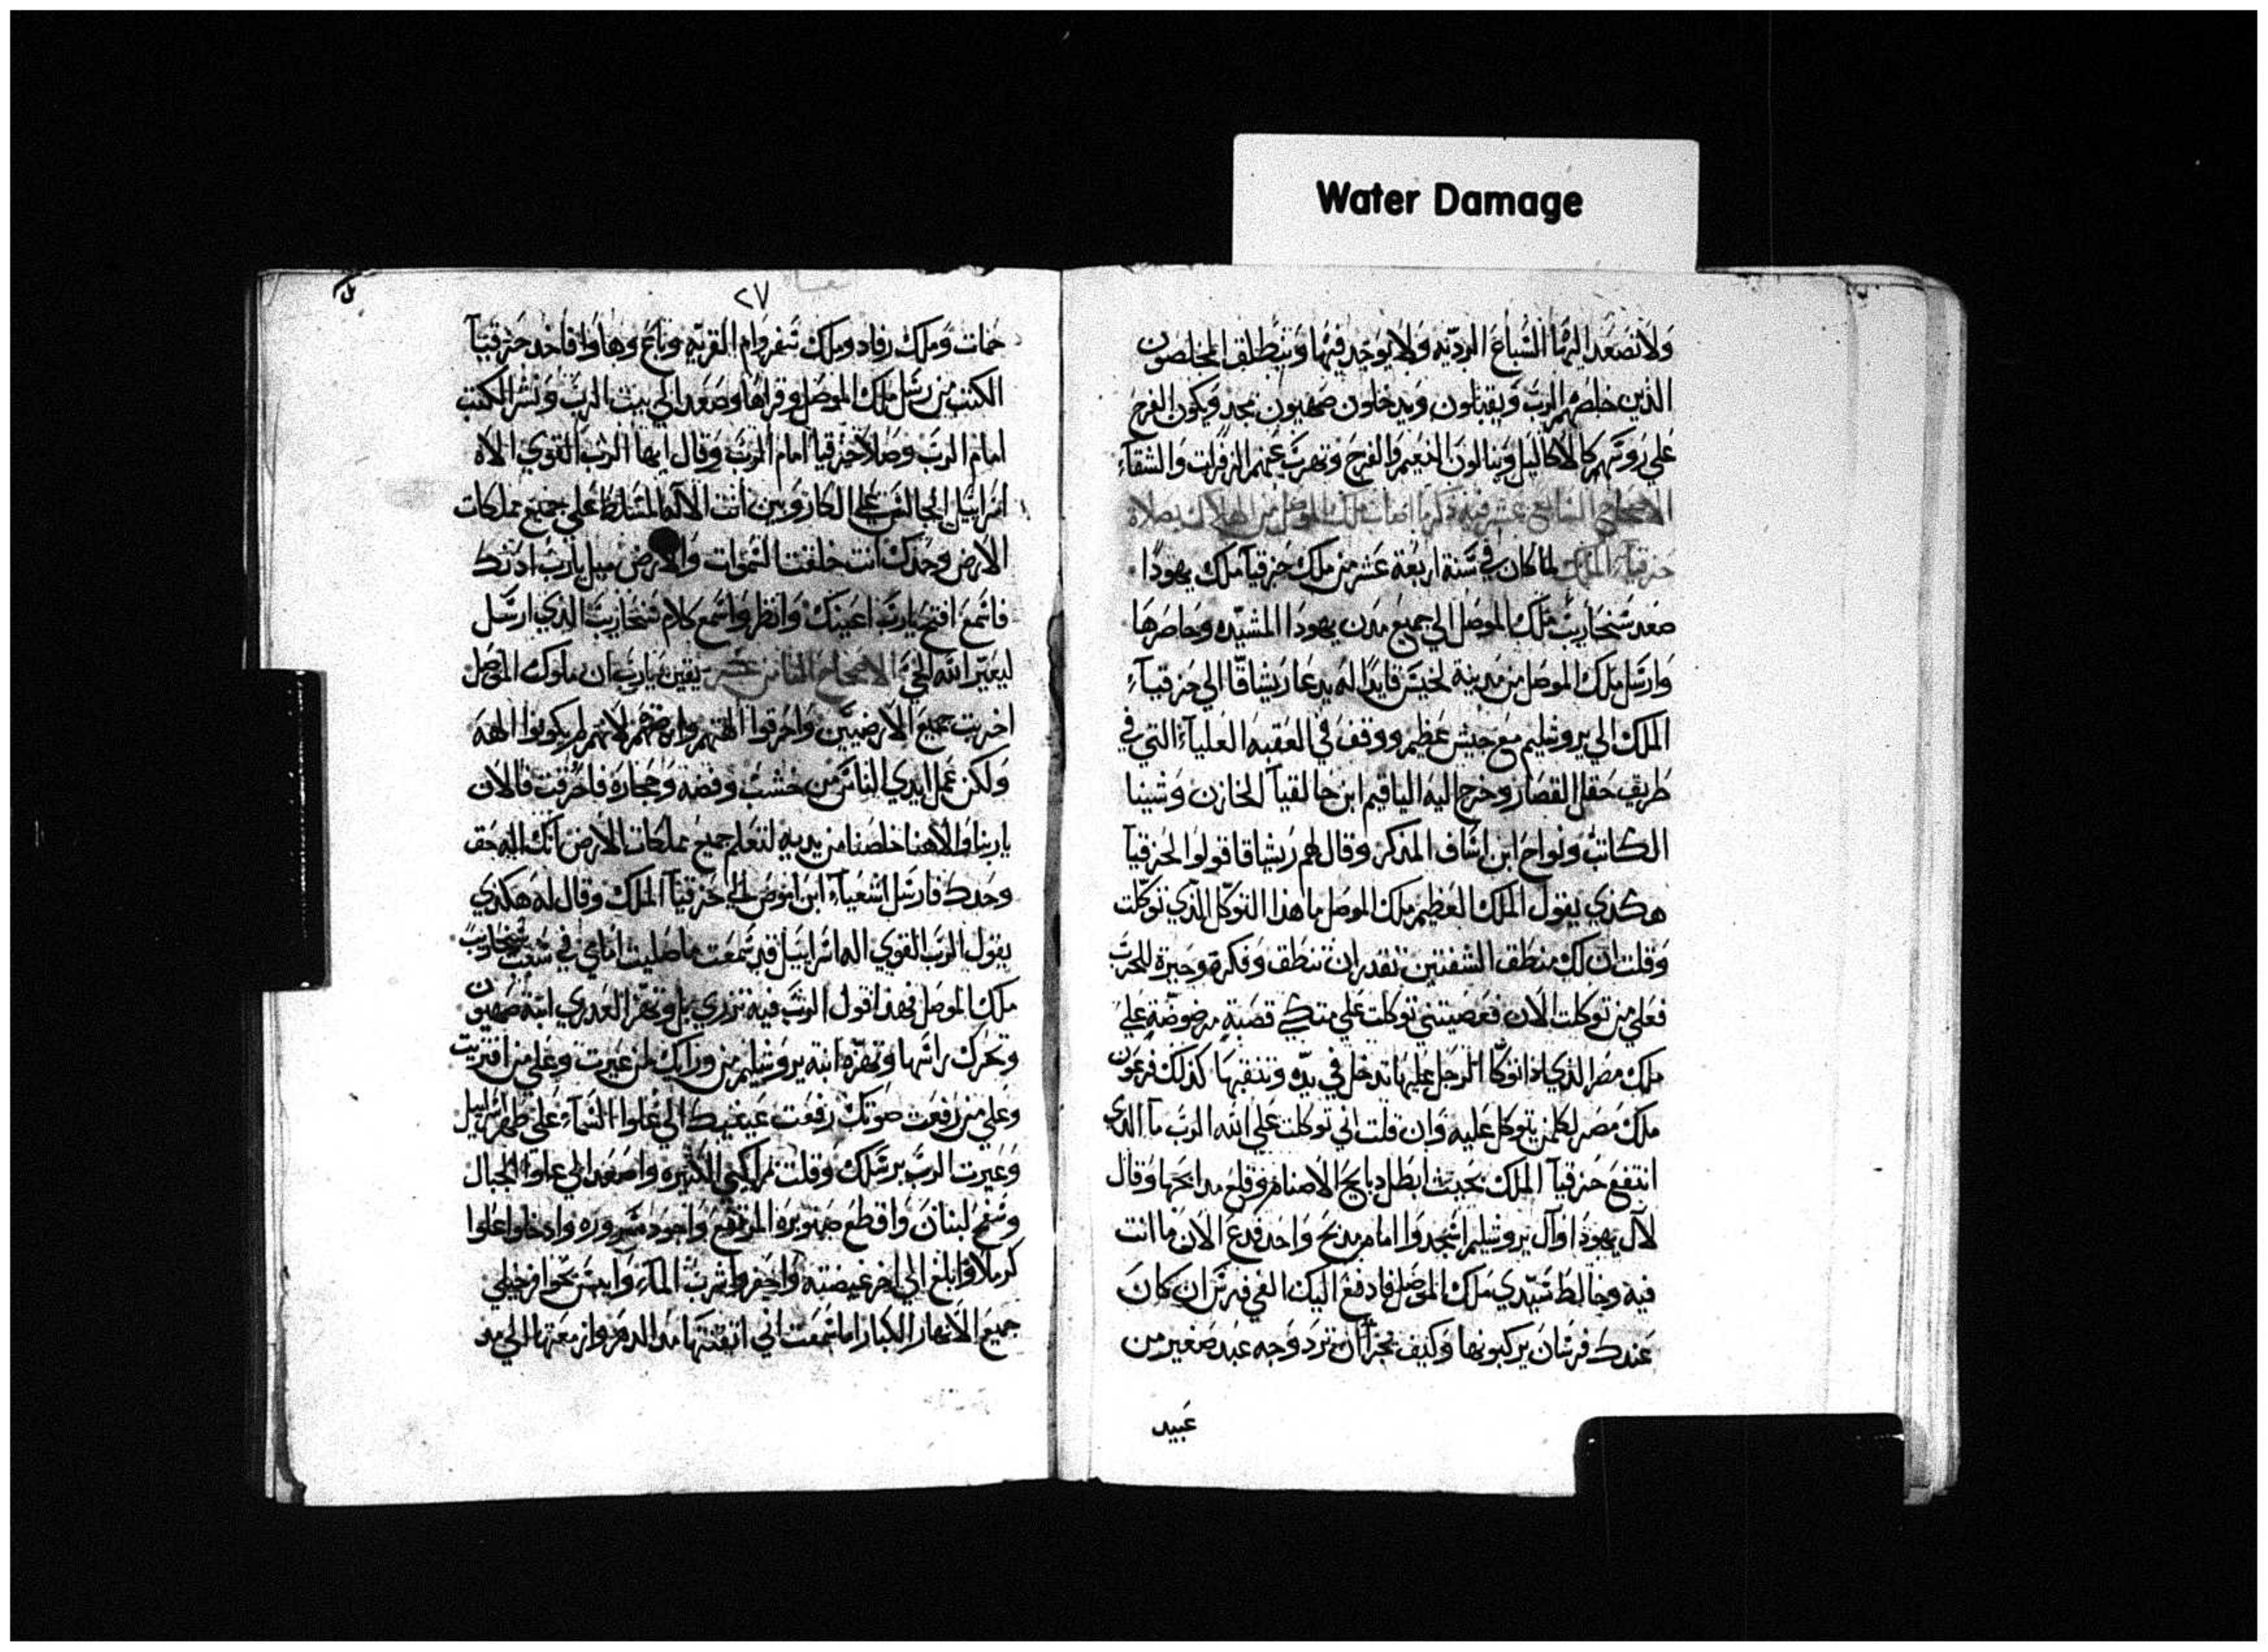 Water Damage
ولا تصعد اليها السباع الرديه ولا يوجد فيها وينطلق المخلصون
الذين خلصهم الرب ويقبلون ويدخلون صهيون بمجد ويكون الفرح
علي روسهم كالاكاليل وينالون النعيم والفرح وتهرب عنهم الزفرات والشقاء
الاصحاح السابع عشر فيه ذكر ملك الموصل من الهلاك بصلاة
حزقيا الملك لما كان في سنة اربعة عشر من ملك حزقيا ملك يهودا
صعد سنحاريب ملك الموصل الي جميع مدن يهودا المشيده وحاصرها
وارسل ملك الموصل من مدينة لخيس قايدا له يدعا ريشاقا الي حزقياء
الملك الي يروشليم مع جيش عظيم ووقف في العقبه العلياء التي في
طريق حقل القصار وخرج اليه الياقيم ابن حالقيا الخازن وشبنا
الكاتب ونواح ابن اساف المذكر وقال لهم ريشاقا قولوا لحزقيا
هكذي يقول الملك العظيم ملك الموصل ما هذا التوكل الذي توكلت
وقلت ان لك منطق الشفتين تقدر ان تنطق وفكرة وحيرة للحرب
فعلي من توكلت الان فعصيتني توكلت علي متكي قصبة مرضوضة علي
ملك مصر الذي اذا توكا الرجل عليها تدخل في يده وتنقبها كذلك فرعون
ملك مصر لكلمن يتوكل عليه وان قلت اني توكلت علي الله الرب ما الذي
انتفع حزقيا الملك بحيث ابطل دبايح الاصنام وقلع مدابحها وقال
لآل يهودا وآل يروشليم اسجدوا امام مدبح واحد فدع الان ما انت
فيه وخالط سيدي ملك الموصل فادفع اليك الفي فرس ان كان
عندك فرسان يركبونها وكيف تجرا ان ترد وجه عبد صغير من
عبيد
٢٧
حمات وملك رفاد وملك سفروام القريه وناع وهاوا فاخد حزقيا
الكتب من رسل ملك الموصل وقراها وصعد الي بيت الرب ونشر الكتب
امام الرب وصلا حزقيا امام الرب وقال ايها الرب القوي الاه
اسراييل الجالس علي الكاروبين انت الاله المتسلط علي جميع مملكات
الارض وحدك انت خلقت السموات والارض ميل يارب ادنك
فاسمع افتح يارب اعينك وانظر واسمع كلام سنحاريب الذي ارسل
ليعير الله الحي الاصحاح الثامن عشر يقين يارب ان ملوك الموصل
اخربت جميع الارضيين واحرقوا الهتهم وارضهم لانهم لم يكونوا الهة
ولكن عمل ايدي الناس من خشب وفضه وحجاره فاحرقت فالان
يا ربنا والاهنا خلصنا من يديه لتعلم جميع مملكات الارض انك اله حق
وحدك فارسل اشعياء ابن اموص الي حزقيا الملك وقال له هكذي
يقول الرب القوي اله اسراييل قد سمعت ما صليت امامي في سبب سنحاريب
ملك الموصل فهذا قول الرب فيه تزدري بل وتهزا العدري ابنة صهيون
وتحرك راسها وتهزه ابنة يروشليم من ورايك لمن عيرت وعلي من افتريت
وعلي من رفعت صوتك رفعت عينيك الي علوا السماء علي طهر اسراييل
وعيرت الرب برسلك وقلت بمراكبي الكثيره واصعد الي علوا الجبال
وسفح لبنان واقطع صنوبره المرتفع واجود سروره وادخل اعلوا
كرملا وابلغ الي اخر غيضته واحفر واشرب الماء وايبس بحوافر خيلي
جميع الانهار الكبار اما سمعت اني اتقنتها مدا الدهر وازمعتها الي مد